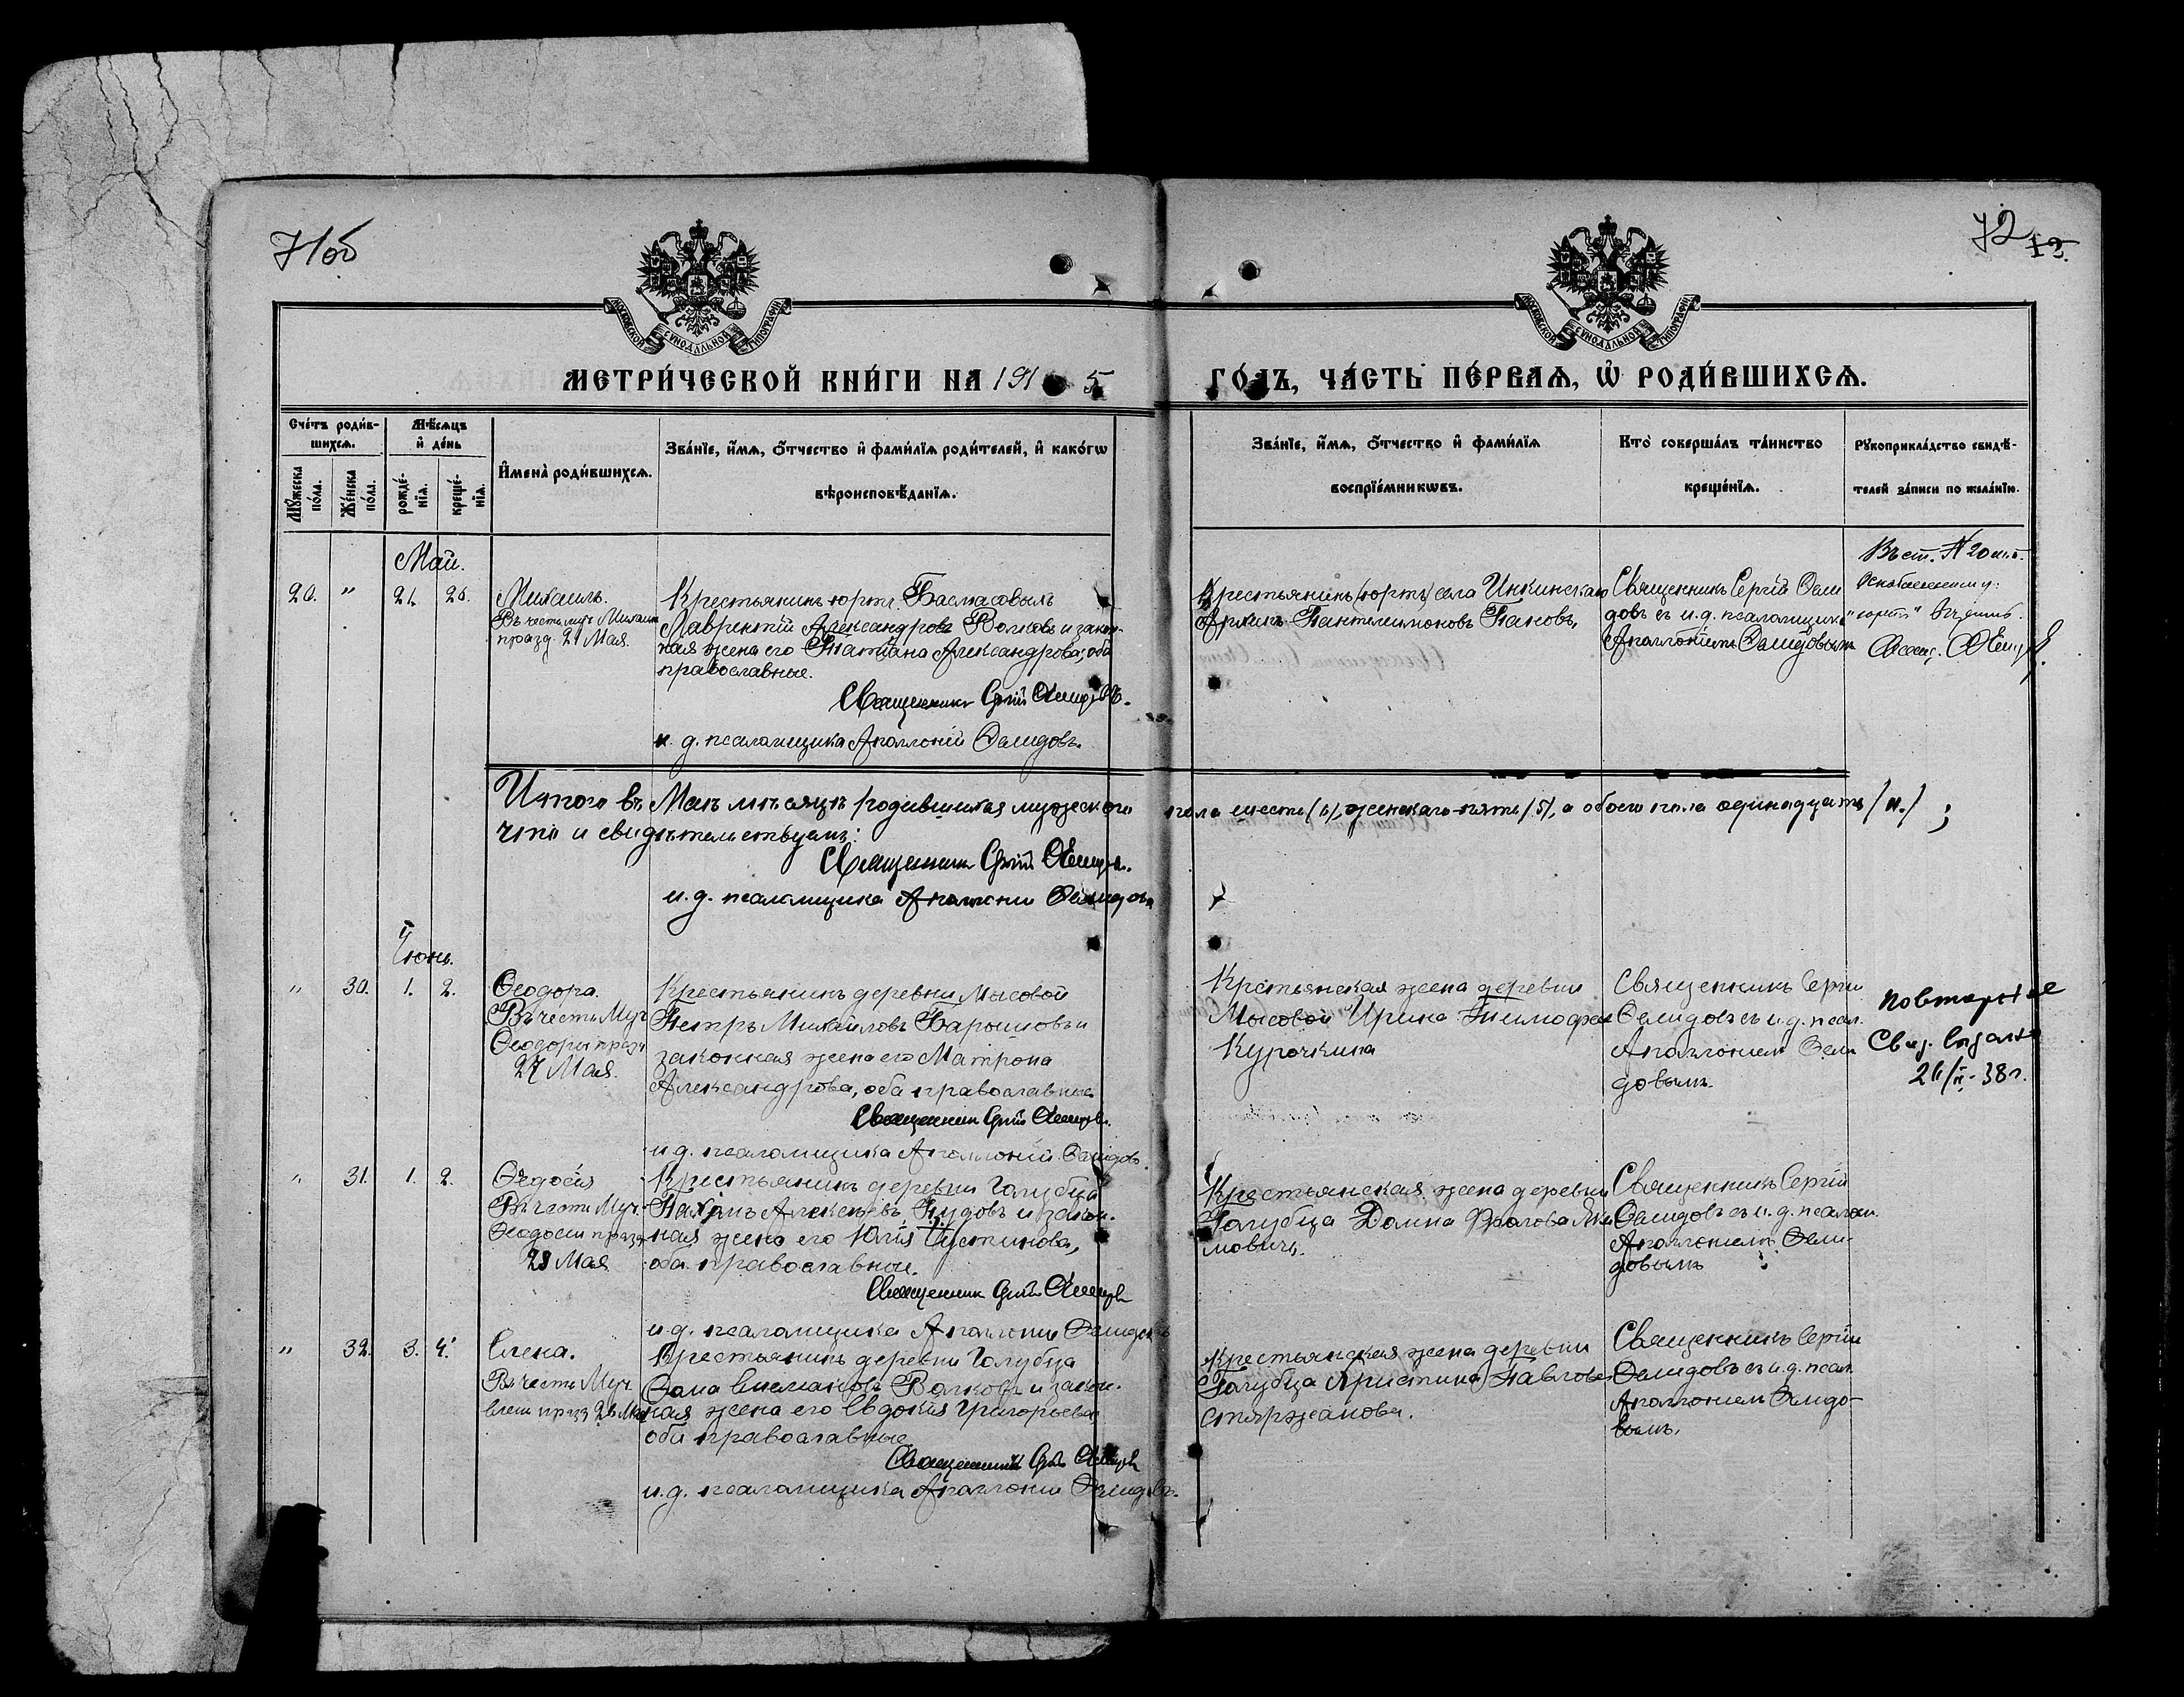 71об
72
13.
МОСКОВСКОЙ СѴНОДАЛЬНОЙ ТИПОГРАФІИ
МОСКОВСКОЙ СѴНОДАЛЬНОЙ ТИПОГРАФІИ
МЕТРИ́ЧЕСКОЙ КНИ́ГИ НА 1915
ГО́ДЪ, ЧА́СТЬ ПЕ́РВАѦ, Ѡ҆ РОДИ́ВШИХСѦ.
Сче́тъ роди́в-
шихсѧ.
Мѣ́сѧцъ
и҆ де́нь
Мꙋ́жеска
по́ла.
Же́нска
по́ла.
рожде́-
нїѧ.
креще́-
нїѧ.
И҆мена̀ роди́вшихсѧ.
Зва́нїе, и҆́мѧ, ѻ҆́тчество и҆ фами́лїѧ роди́телей, и҆ како́гѡ
вѣроисповѣ́данїѧ.
Зва́нїе, и҆́мѧ, ѻ҆́тчество и҆ фами́лїѧ
воспрїе́мникѡвъ.
Кто̀ соверша́лъ та́инство
креще́нїѧ.
Рꙋкоприкла́дство свидѣ́-
телей за́писи по жела́нїю.
Май.
20. " 21. 26. Михаилъ.
Въ честь муч. Михаила
празд. 21 Мая.
Крестьянинъ юртъ. Басмасовыхъ
Лаврентій Александровъ Волковъ и закон-
ная жена его Татіана Александрова; оба
православные.
Священникъ Сергій Демидовъ.
и. д. псаломщика Аполлоній Демидовъ.
Крестьянинъ (юртъ) села Инкинскаго
Пантелеимоновъ Пановъ.
Священникъ Сергій Деми
довъ съ и. д. псаломщика
Аполлоніемъ Демидовымъ
Въ ст. № 20
"юртъ"
Итого въ Маѣ мѣсяцѣ родившихся мужескаго пола шесть (6), женскаго-пять (5), а обоего пола одинадцать (11.);
что и свидѣтельствуемъ:
Священникъ Сергій Демидовъ.
и. д. псаломщика Аполлоній Демидовъ
Іюнь.
" 30. 1. 2. Ѳеодора.
Въ честь Муч
Ѳеодоры празд
27 Мая.
Крестьянинъ деревни Мысовой
Петръ Михаиловъ Барышовъ и
законная жена его Матрона
Александрова, оба православные
Священникъ Сергій Демидовъ.
и. д. псаломщика Аполлоній Демидовъ.
Крестьянская жена деревни
Мысовой Ирина Тимофеева
Курочкина
Священникъ Сергій
Демидовъ съ и. д. псал.
Аполлоніемъ Деми
довымъ.
повторное
Свид. выдано
26/II-38г.
" 31. 1. 2. Ѳедосія
Въ честь Муч.
Ѳеодосіи празд
29 Мая
Крестьянинъ деревни Голубца
Пахомъ Алексѣевъ Кудовъ и закон.
ная жена его Юлія Іустинова,
оба православные.
Священникъ Сергій Демидовъ
и. д. псаломщика Аполлоній Демидовъ
Крестьянская жена деревни
Голубца Домна Фролова Яки
мовичъ.
Священникъ Сергій
Демидовъ съ и. д. псалом.
Аполлоніемъ Деми-
довымъ
" 32. 3. 4. Елена.
Въ честь Муч.
Елены празд 26 Мая
Крестьянинъ деревни Голубца
Ѳома Волковъ и закон.
ная жена его Евдокія Григорьева
оба православные
Священникъ Сергій Демидовъ
и. д. псаломщика Аполлоній Демидовъ.
Крестьянская жена деревни
Голубца Христина Павлова
Стяржанова.
Священникъ Сергій
Демидовъ съ и. д. псал.
Аполлоніемъ Демидо-
вымъ.